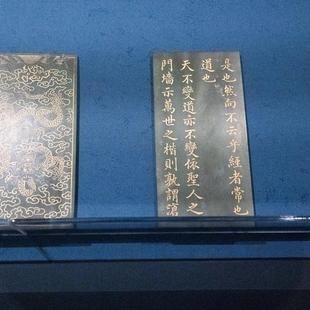 是也然尚不云乎經者常也
道也
天不變道亦不變依聖人之
門墻示萬世之楷則孰謂滄